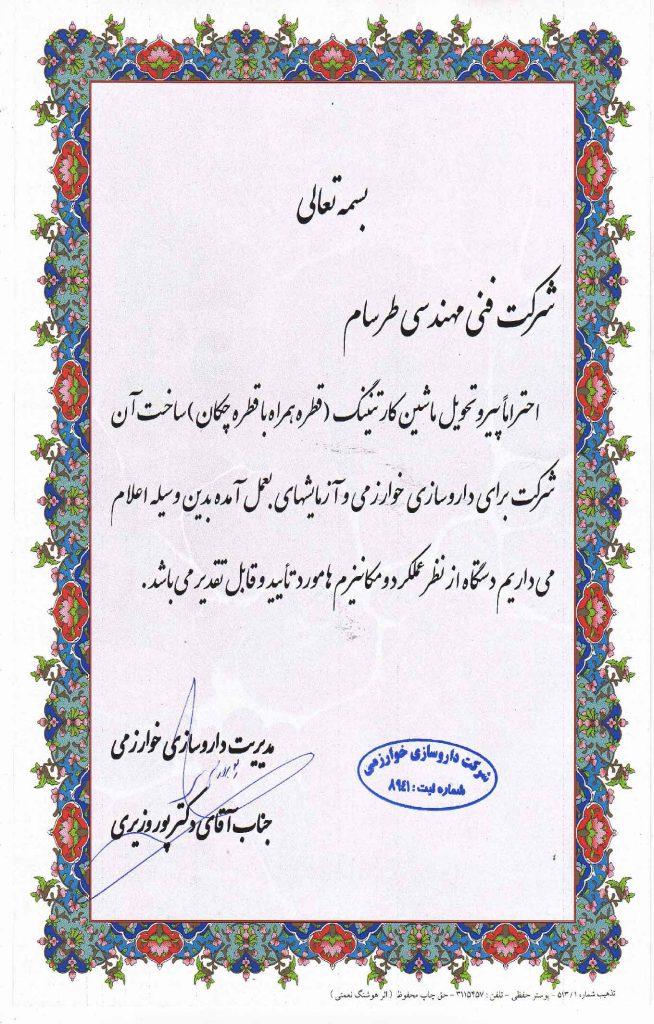 بسمه تعالی
شرکت فنی مهندسی طرسام
احتراماً پیرو تحویل ماشین کارتنینگ (قطره همراه با قطره چکان) ساخت آن
شرکت برای داروسازی خوارزمی و آزمایشهای بعمل آمده بدین وسیله اعلام
می داریم دستگاه از نظر عملکرد و مکانیزم ها مورد تأیید و قابل تقدیر می باشد.
مدیریت داروسازی خوارزمی
جناب آقای دکتر پوروزیری
شرکت داروسازی خوارزمی
شماره ثبت: ۸۹۴۱
تذهیب شماره ۵۱۳/۱ - پوستر حفظی - تلفن: ۳۱۱۵۴۵۷ - حق چاپ محفوظ (اثر هوشنگ نعمتی)